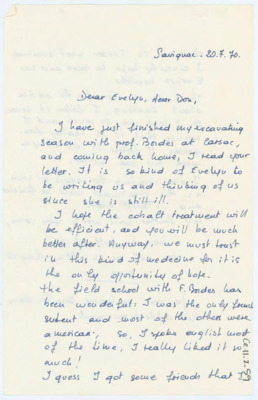 Savignac. 20.7.70.
Dear Evelyn, dear Don,
I have just finished my excavating
season with prof. Bordes at Carsac,
and coming back home, I read your
letter. It is so kind of Evelyn to
be writing us and thinking of us
since she is still ill.
I hope the cobalt treatment will
be efficient, and you will be much
better after. Anyway, we must trust
in this kind of medecine for it is
the only opportunity of hope.
the field school with F. Bordes has
been wonderful: I was the only french
student and most of the others were
american. So, I spoke english most
of the time, I really liked it so
much!
I guess I got some friends that I